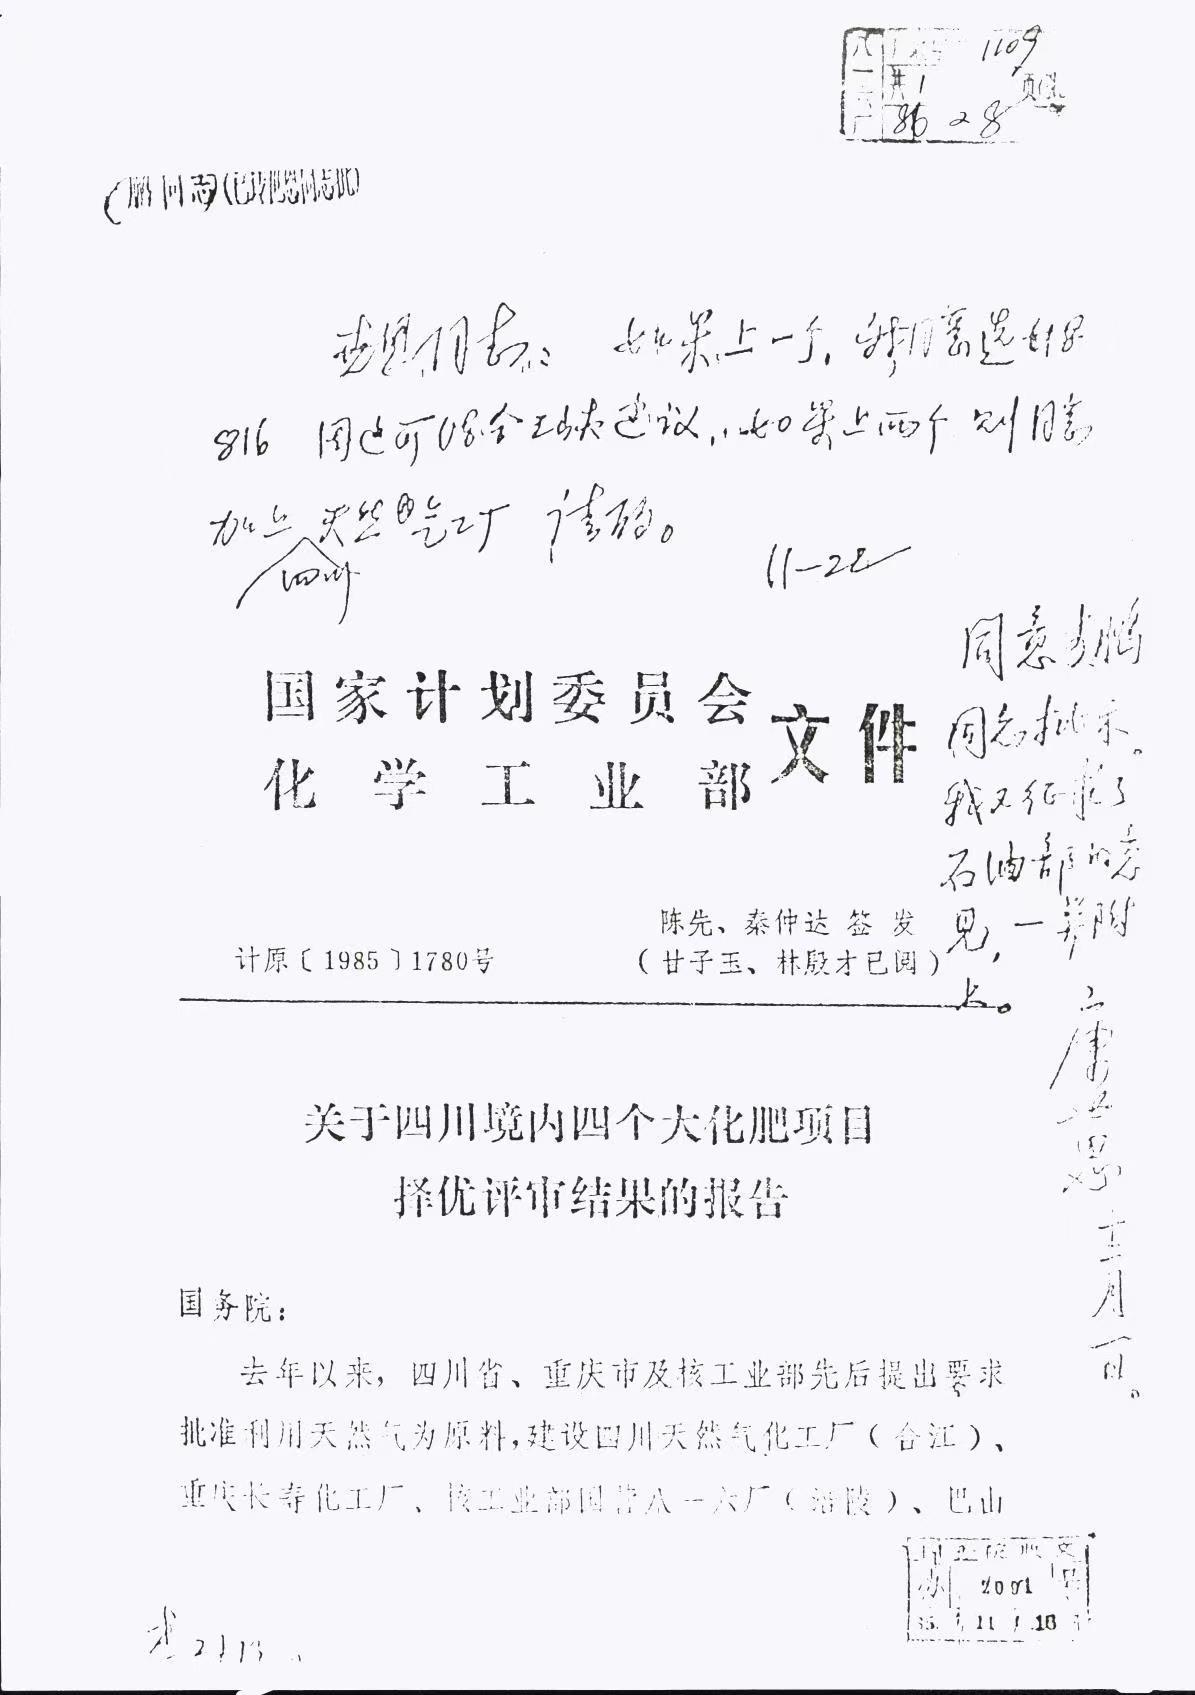 1109
共1页
86 2 8
世恩同志：如果上一个，我同意选择
816 因这可结合三峡建议，如果上两个则同意
加上天然气工厂 请酌。
四川
11-28
国家计划委员会
化学工业部
文件
同意
同志批示。
我又征求了
石油部的意
见，一并附
上。
十二月一日。
陈先、秦仲达 签 发
计原〔1985〕1780号
（甘子玉、林殷才已阅）
关于四川境内四个大化肥项目
择优评审结果的报告
国务院：
去年以来，四川省、重庆市及核工业部先后提出要求
批准利用天然气为原料，建设四川天然气化工厂（合江）、
重庆长寿化工厂、核工业部国营八一六厂（涪陵）、巴山
2001
85. 11 18